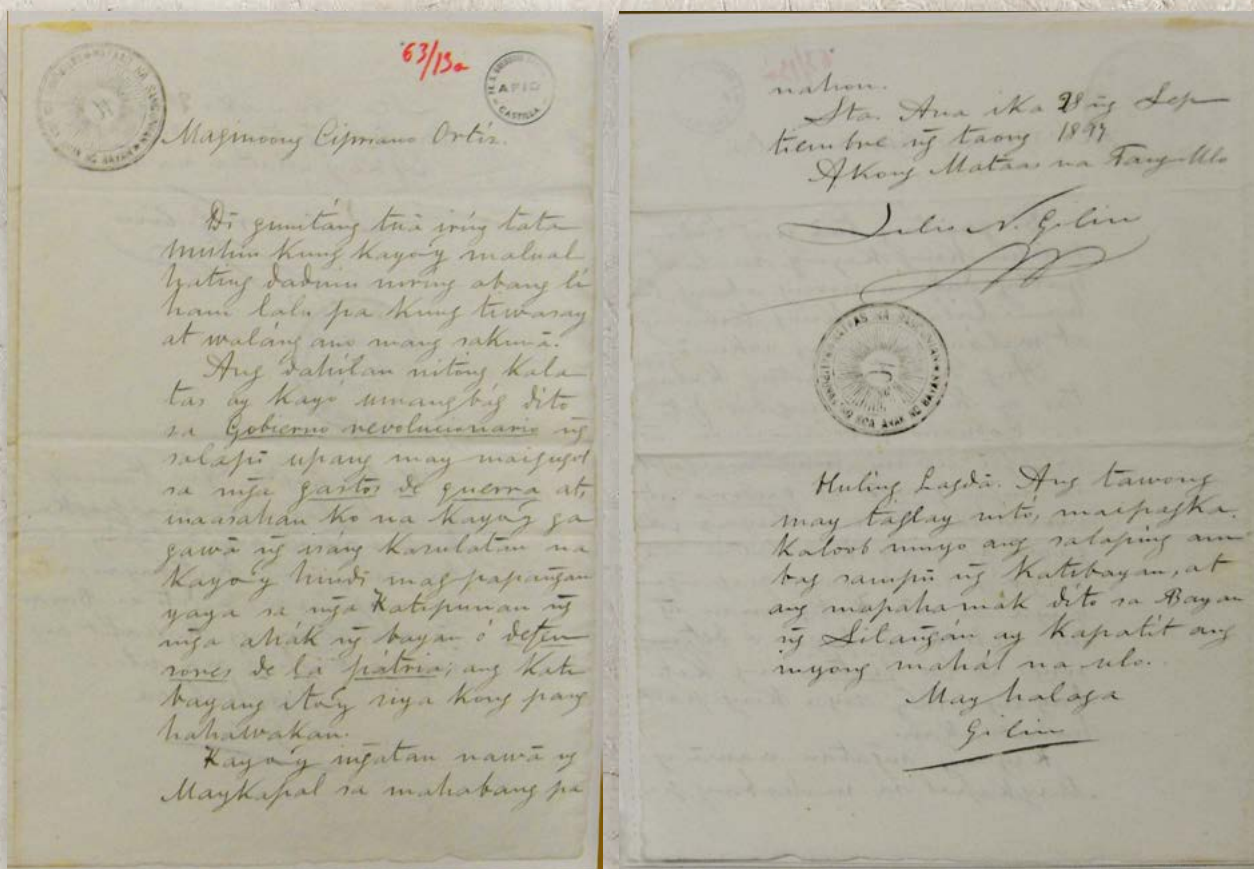 63/13a
AFIO
CASTILLA
Maginoong Cipriano Ortís.
Di gunitáng tuā iring tata
muhin kung kayo'y malual
hating dadinu niring abang li
ham lalu pa kung tiwasay
at waláng ano mang sakunā.
Ang dahilan nitong kala
tas ay kayo umangbág dito
sa Gobierno revolucionario ng̃
salapi upang may maigugol
sa mg̃a gastos de guerra at,
inaasahan ko na kayo'y ga
gawā ng̃ isáng kasulatan na
kayo'y hindi mag papang̃an
yaya sa mg̃a Katipunan ng̃
mg̃a anák ng̃ bayan ó defen
sores de la pátria; ang kati
bayang ito'y siya kong pang
hahawakan.
Kayo'y ing̃atan nawā ng̃
Maykapal sa mahabang pa
nahon.
Sta. Ana ika 28 ng̃ Sep
tiembre ng̃ taong 1899
Akong Mataas na Tang-Ulo
Julio N. Gilin
KATAAS NA SANGUNIAN
NG MGA ANAK NG BAYAN
Huling Lagdā. Ang tawong
may taglay nito, maipagka
kaloob ninyo ang salaping am
bag sampū ng̃ katibayan, at
ang mapahamak dito sa Bayan
ng̃ Silang̃án ay kapatít ang
inyong mahál na ulo.
May halaga
Gilin